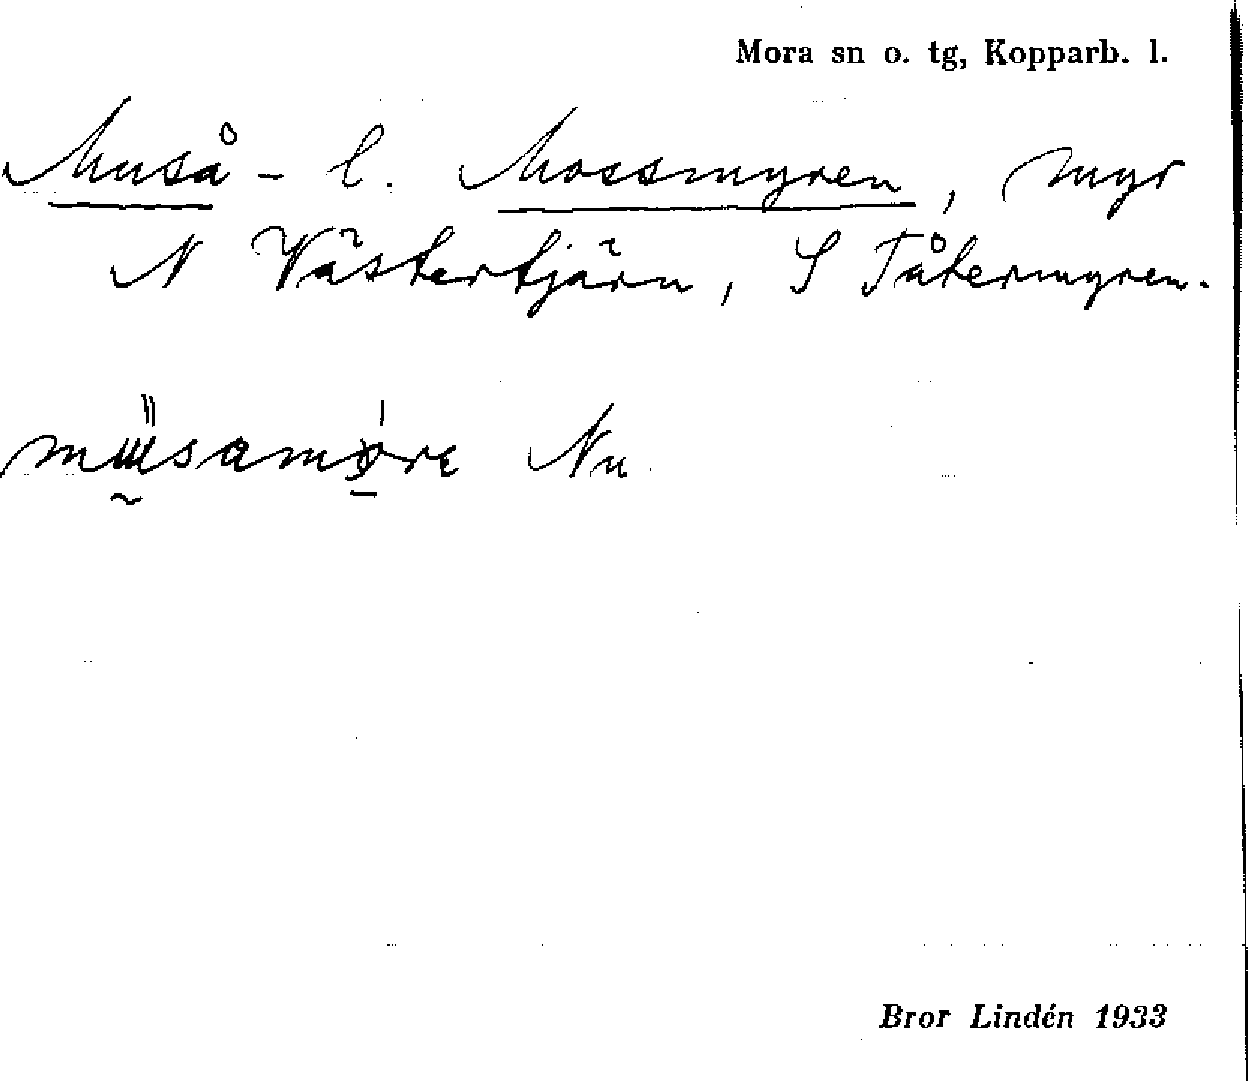 Mora sn o. tg, Kopparb. l.
Muså- l. Mossmyren, myr
N Västertjärn, S Tåtermyren.
Nu
Bror Lindén 1933